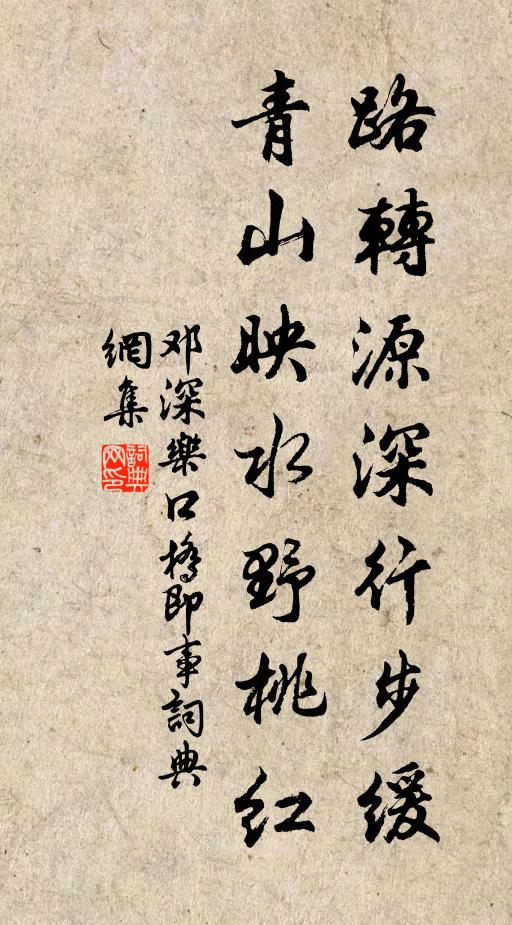 路轉源深行步緩
青山映水野桃紅
邓深樂口橋即事詞典
網集
詞典
网印